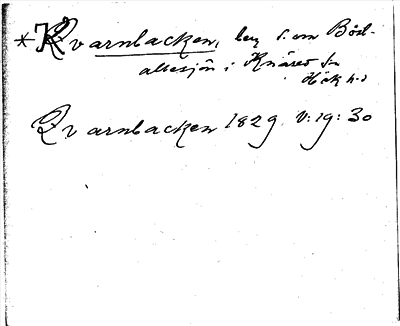 *Kvarnbacken, berg S. om Böst-
altesjön i Knäred sn
Hök h.d
Qvarnbacken 1829 V:19:30